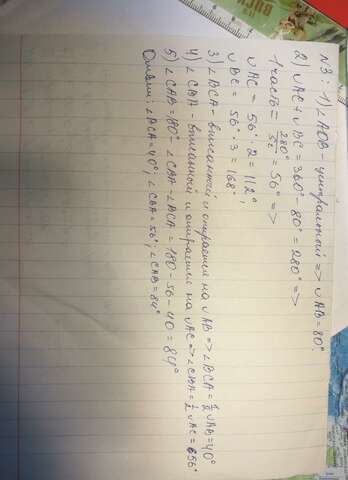 N3. 1) ∠AOB центральный => ∪AB = 80°
2) ∪AC + ∪BC = 360° - 80° = 280° =>
1 часть = 280°/5 = 56° =>
∪AC = 56 · 2 = 112°,
∪BC = 56° · 3 = 168°
3) ∠BCA - вписанный и опирается на ∪AB => ∠BCA = ½ ∪AB = 40°
4) ∠CBA - вписанный и опирается на ∪AC => ∠CBA = ½ ∪AC = 56°
5) ∠CAB = 180° - ∠CBA - ∠BCA = 180 - 56 - 40 = 84°
Ответ: ∠BCA = 40°; ∠CBA = 56°; ∠CAB = 84°